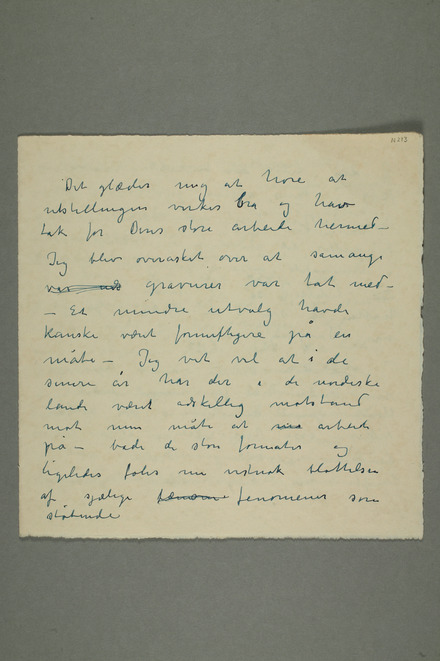 N 293
Det glæder mig at høre at
utstillingen virker bra og hav
tak for Deres store arbeide hermed –
Jeg blev overasket over at samange
gravurer var tat med –
– Et mindre utvalg havde
kanske været fornuftigere på en
måte – Jeg vet vel at i de
senere år har der i de nordiske
lande været adskillig motstand
mot min måte at arbeide
på – både de store formater og
ligeledes føles nu vistnok blottelsen
af sjælige fenomener som
støtende